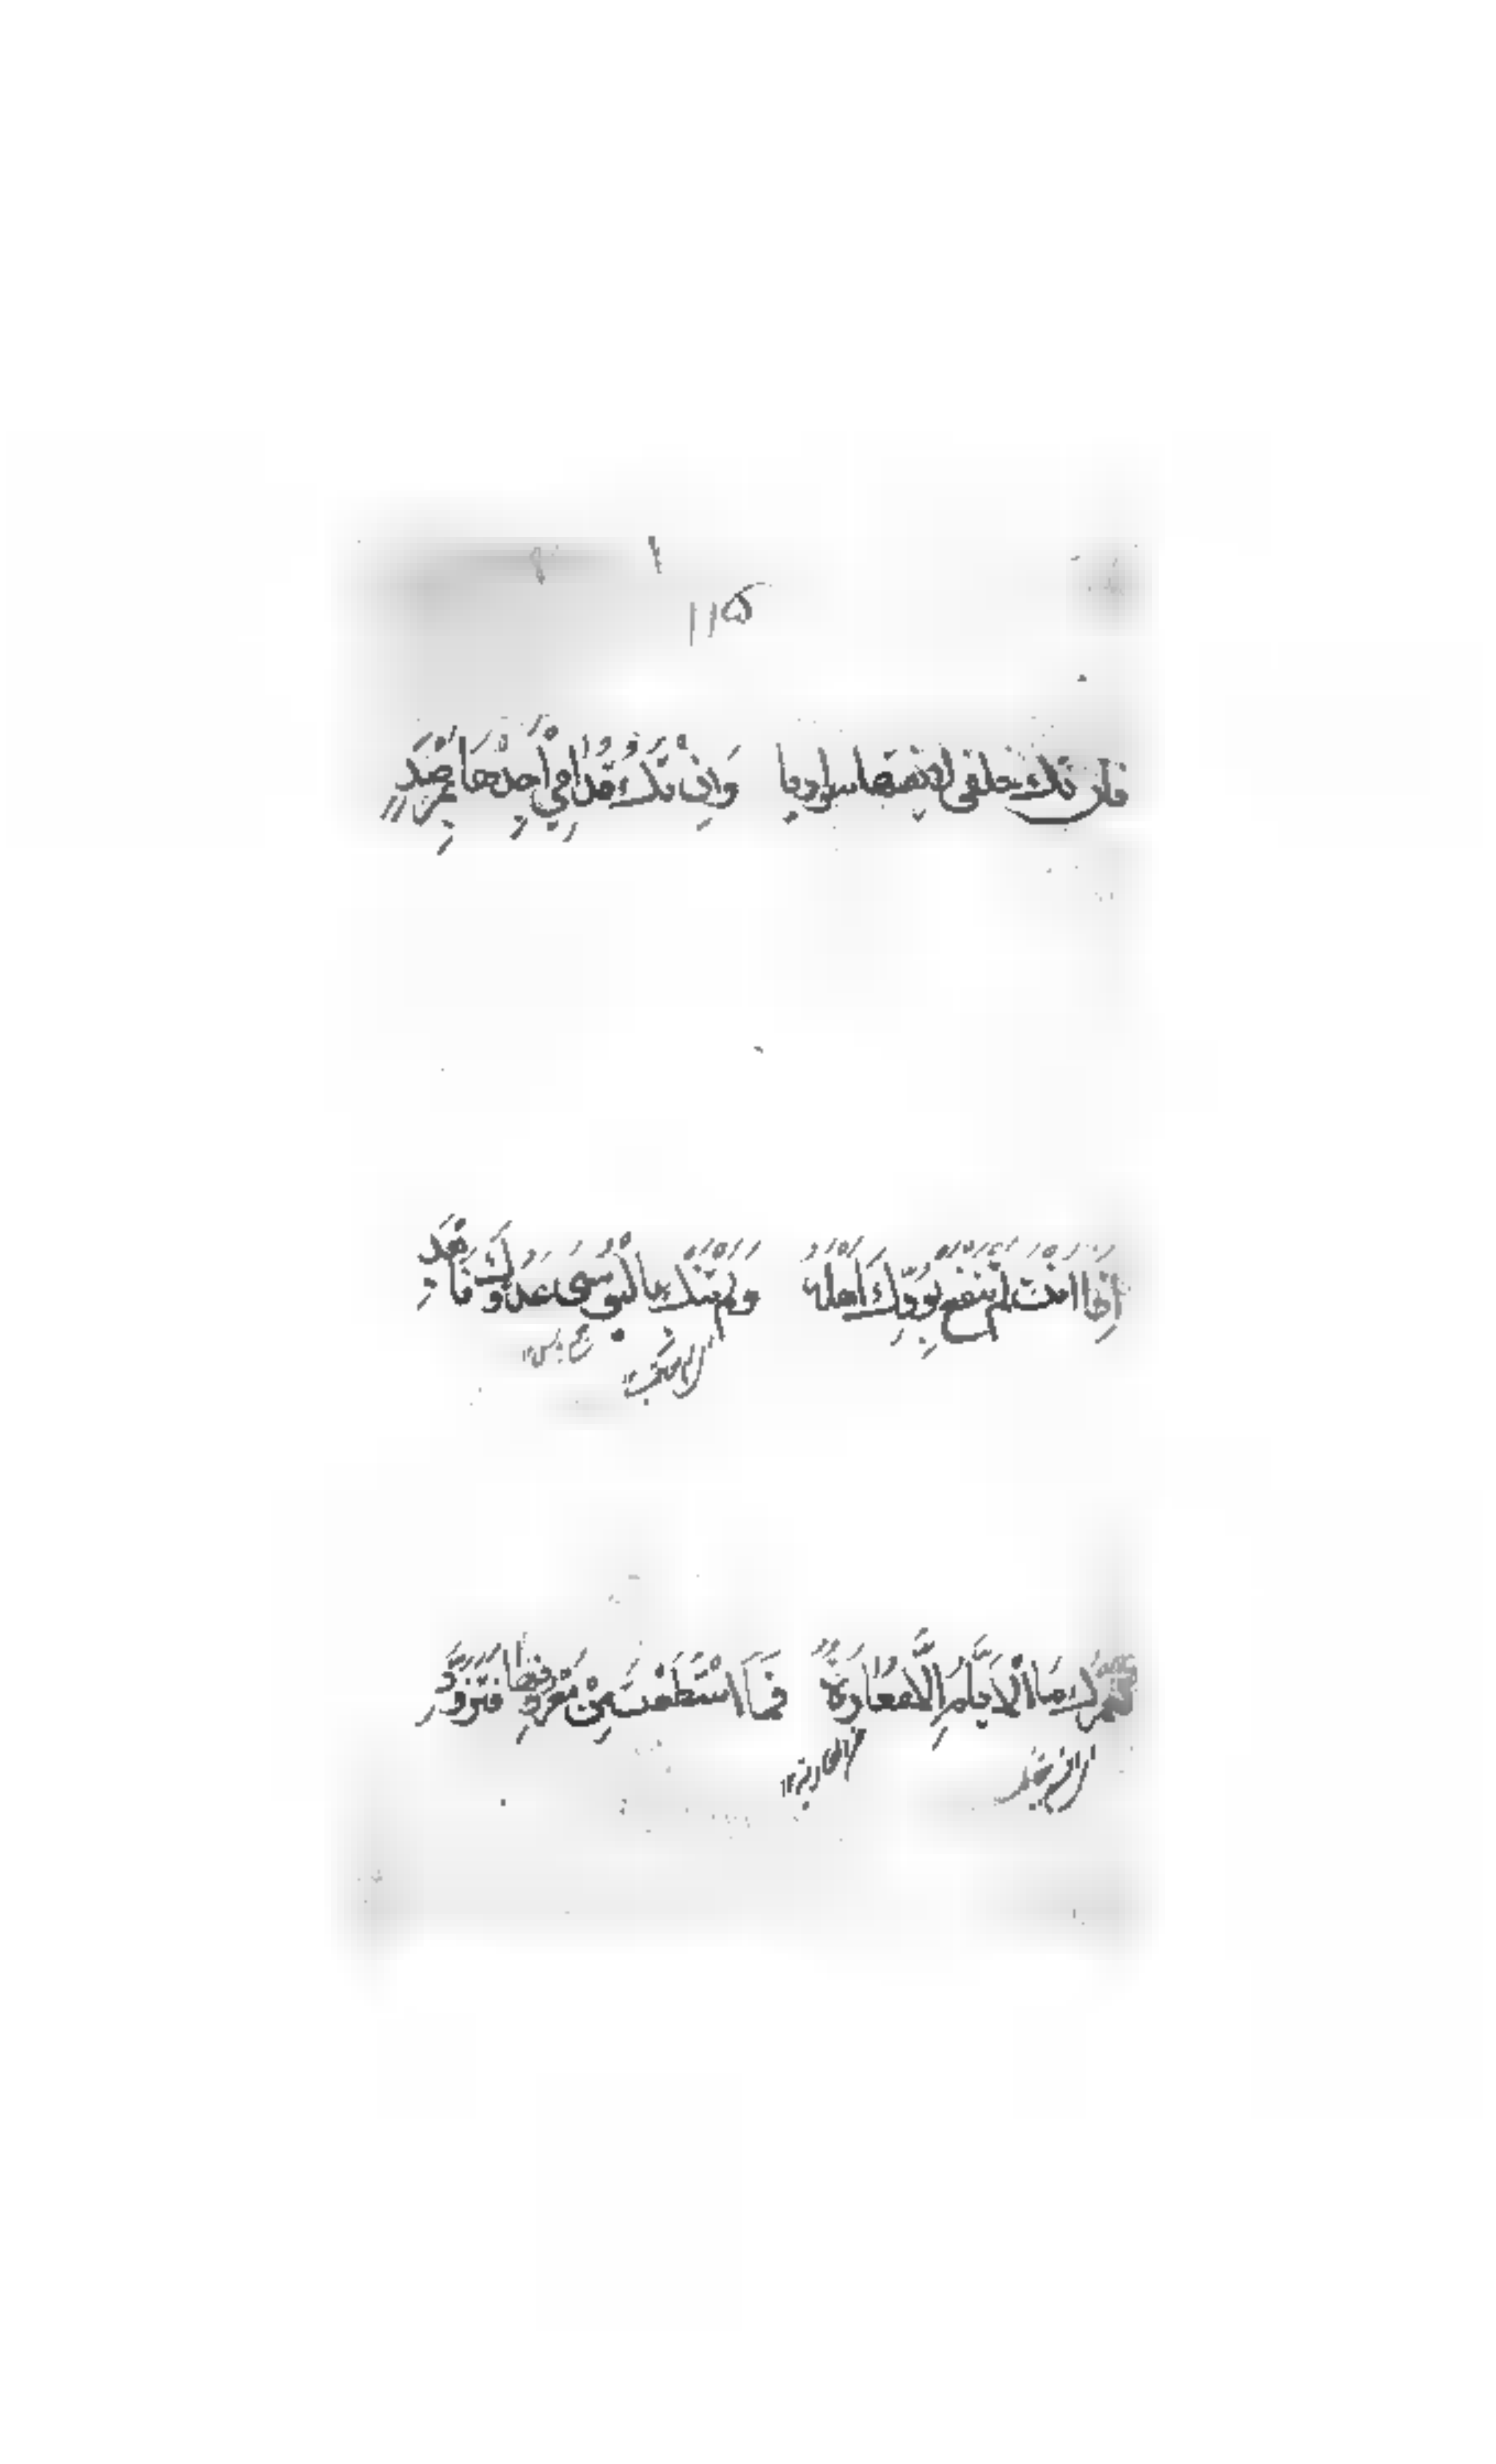 ١١٥
فان تك خلفي لا تفتها سواديا وَاِنْ تَكُ قُدَّامِي اَجِدْهَا بِمَرْصَدِ
اِذَا اَنْتَ لَمْ تَنْفَعْ بِوُدِّكَ اَهْلَهُ وَلَمْ تَنْكِ بِالْبُؤْسَى عَدُوَّكَ فَابْعَدِ
لَعَمْرُكَ مَا الْاَيَّامُ اِلَّا مُعَارَةٌ فَمَا اسْطَعْتَ مِنْ مَعْرُوفِهَا فَتَزَوَّدِ